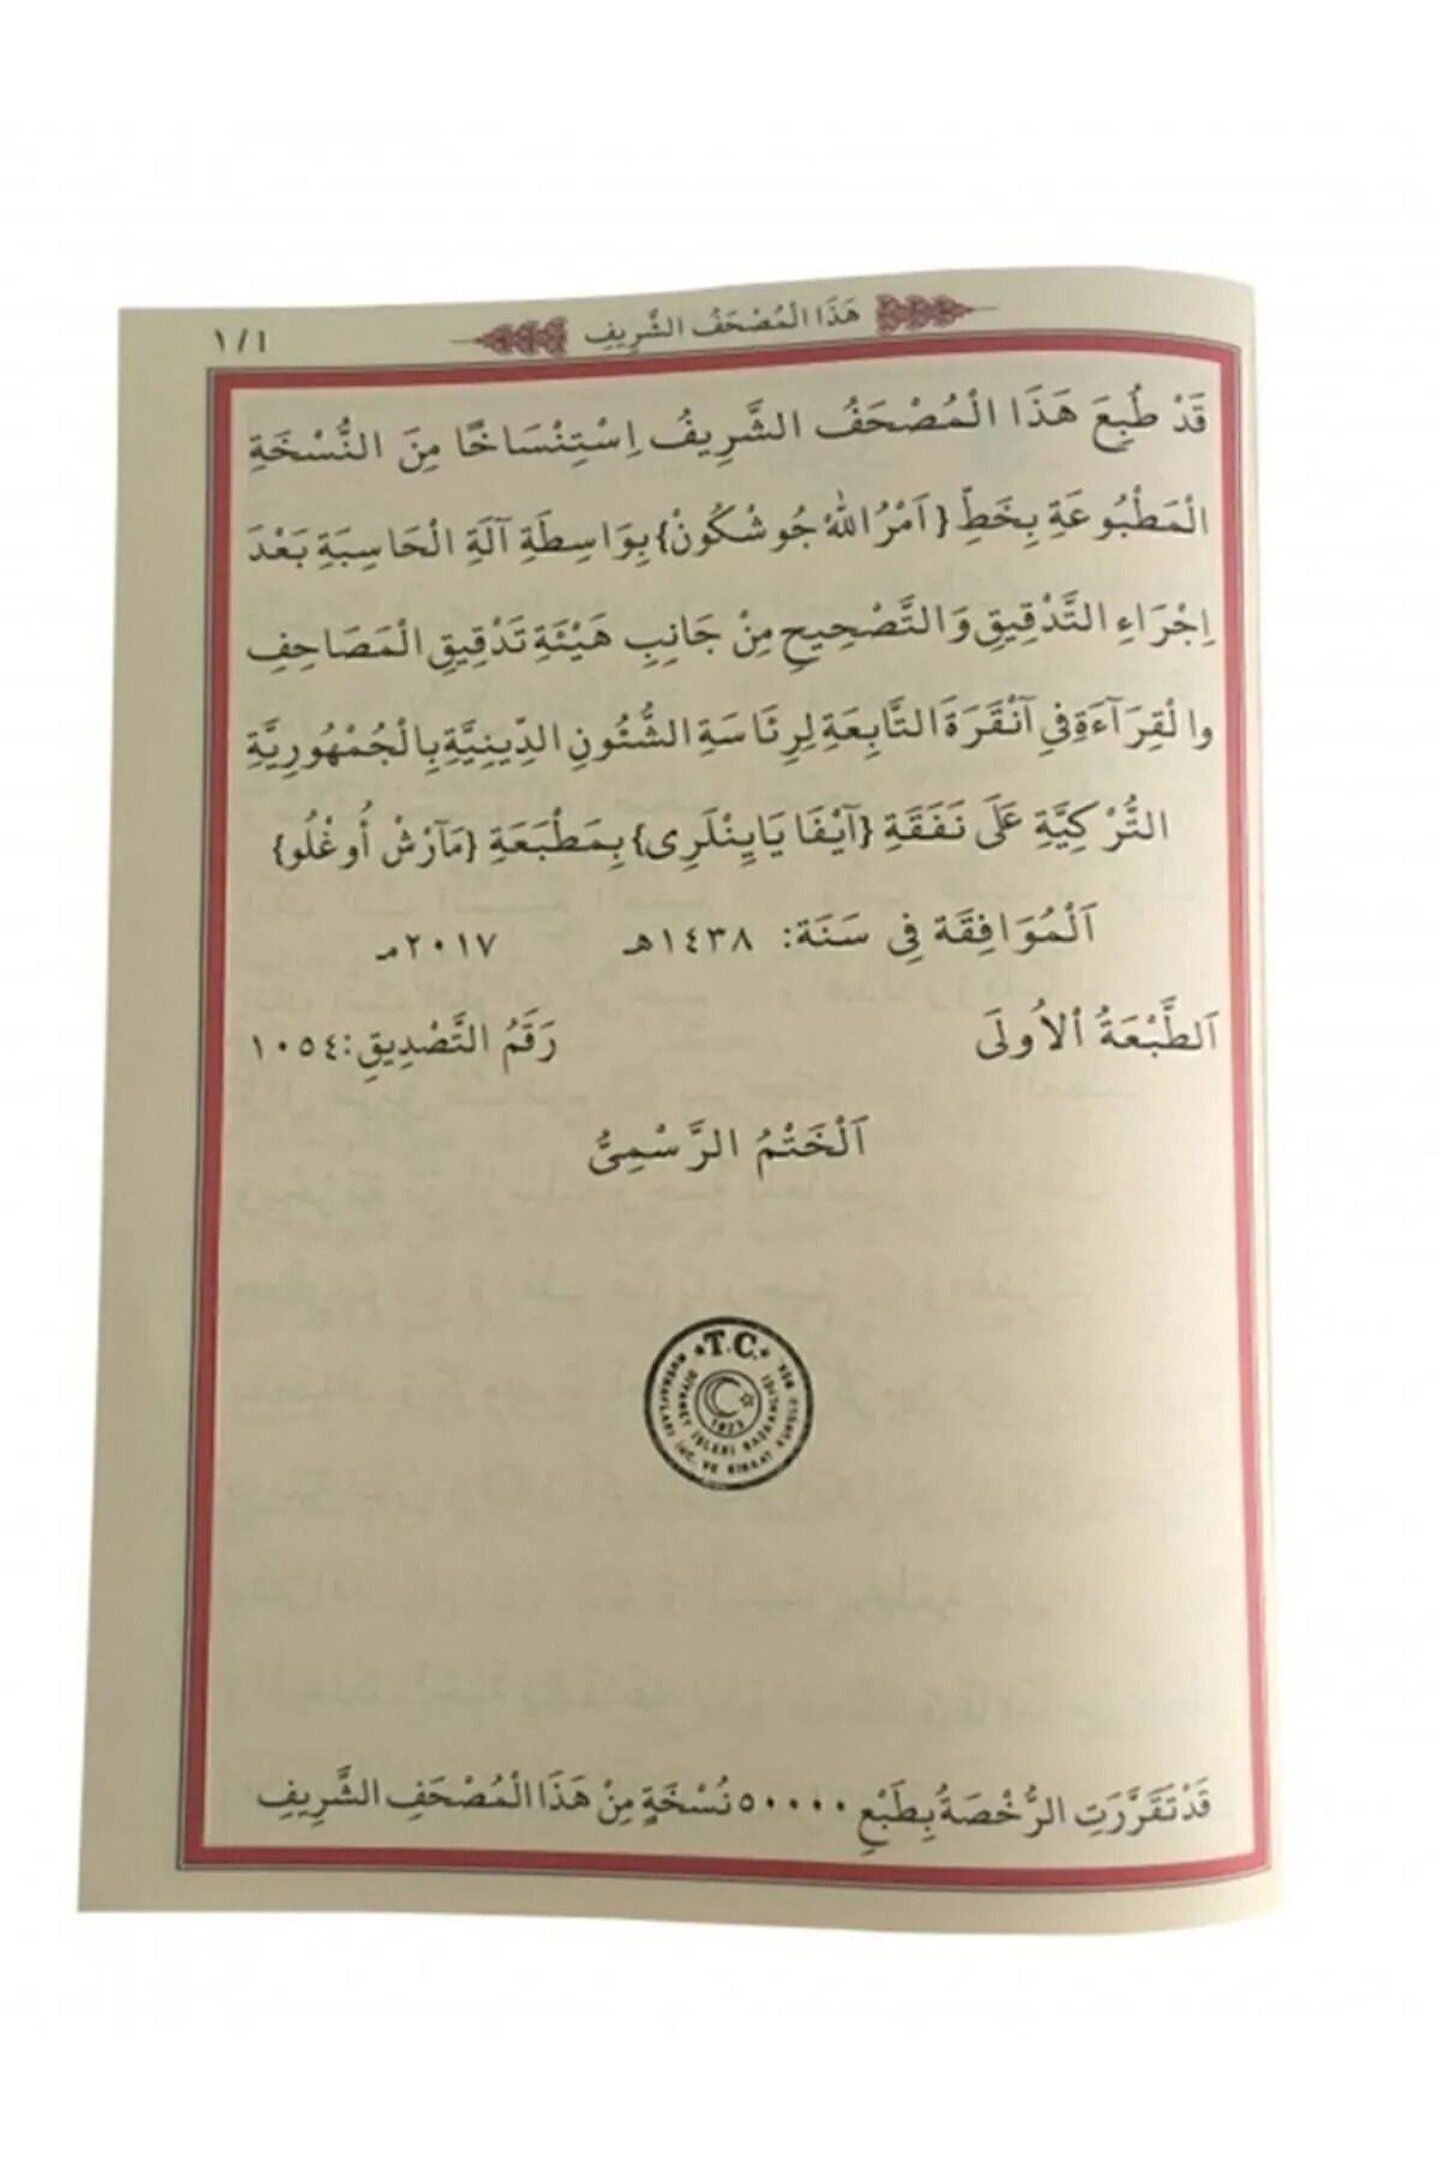 هَذَا الْمُصْحَفُ الشَّرِيفِ
١/١
قَدْ طُبِعَ هَذَا الْمُصْحَفُ الشَّرِيفُ اِسْتِنْسَاخًا مِنَ النُّسْخَةِ
الْمَطْبُوعَةِ بِخَطِّ {اَمْرُ اللّٰهْ جُوشْكُونْ} بِوَاسِطَةِ آلَةِ الْحَاسِبَةِ بَعْدَ
اِجْرَاءِ التَّدْقِيقِ وَالتَّصْحِيحِ مِنْ جَانِبِ هَيْئَةِ تَدْقِيقِ الْمَصَاحِفِ
والْقِرَآءَةِ فِي آنْقَرَةَ التَّابِعَةِ لِرِئَاسَةِ الشُّئُونِ الدِّينِيَّةِ بِالْجُمْهُورِيَّةِ
التُّرْكِيَّةِ عَلَى نَفَقَةِ {آيْفَا يَايِنْلَرِى} بِمَطْبَعَةِ {مَآرْشْ أُوغْلُو}
اَلْمُوَافِقَة فِي سَنَة: ١٤٣٨هـ ٢٠١٧مـ
اَلطَّبْعَةُ الْاُولَى رَقَمُ التَّصْدِيقِ: ١٠٥٤
اَلْخَتْمُ الرَّسْمِىُّ
T.C.
DİYANET İŞLERİ BAŞKANLIĞI
MUSHAFLARI İNC. VE KIRAAT KURULU
1923
قَدْ تَقَرَّرَتِ الرُّخْصَةُ بِطَبْعِ ٥٠٠٠٠ نُسْخَةٍ مِنْ هَذَا الْمُصْحَفِ الشَّرِيفِ